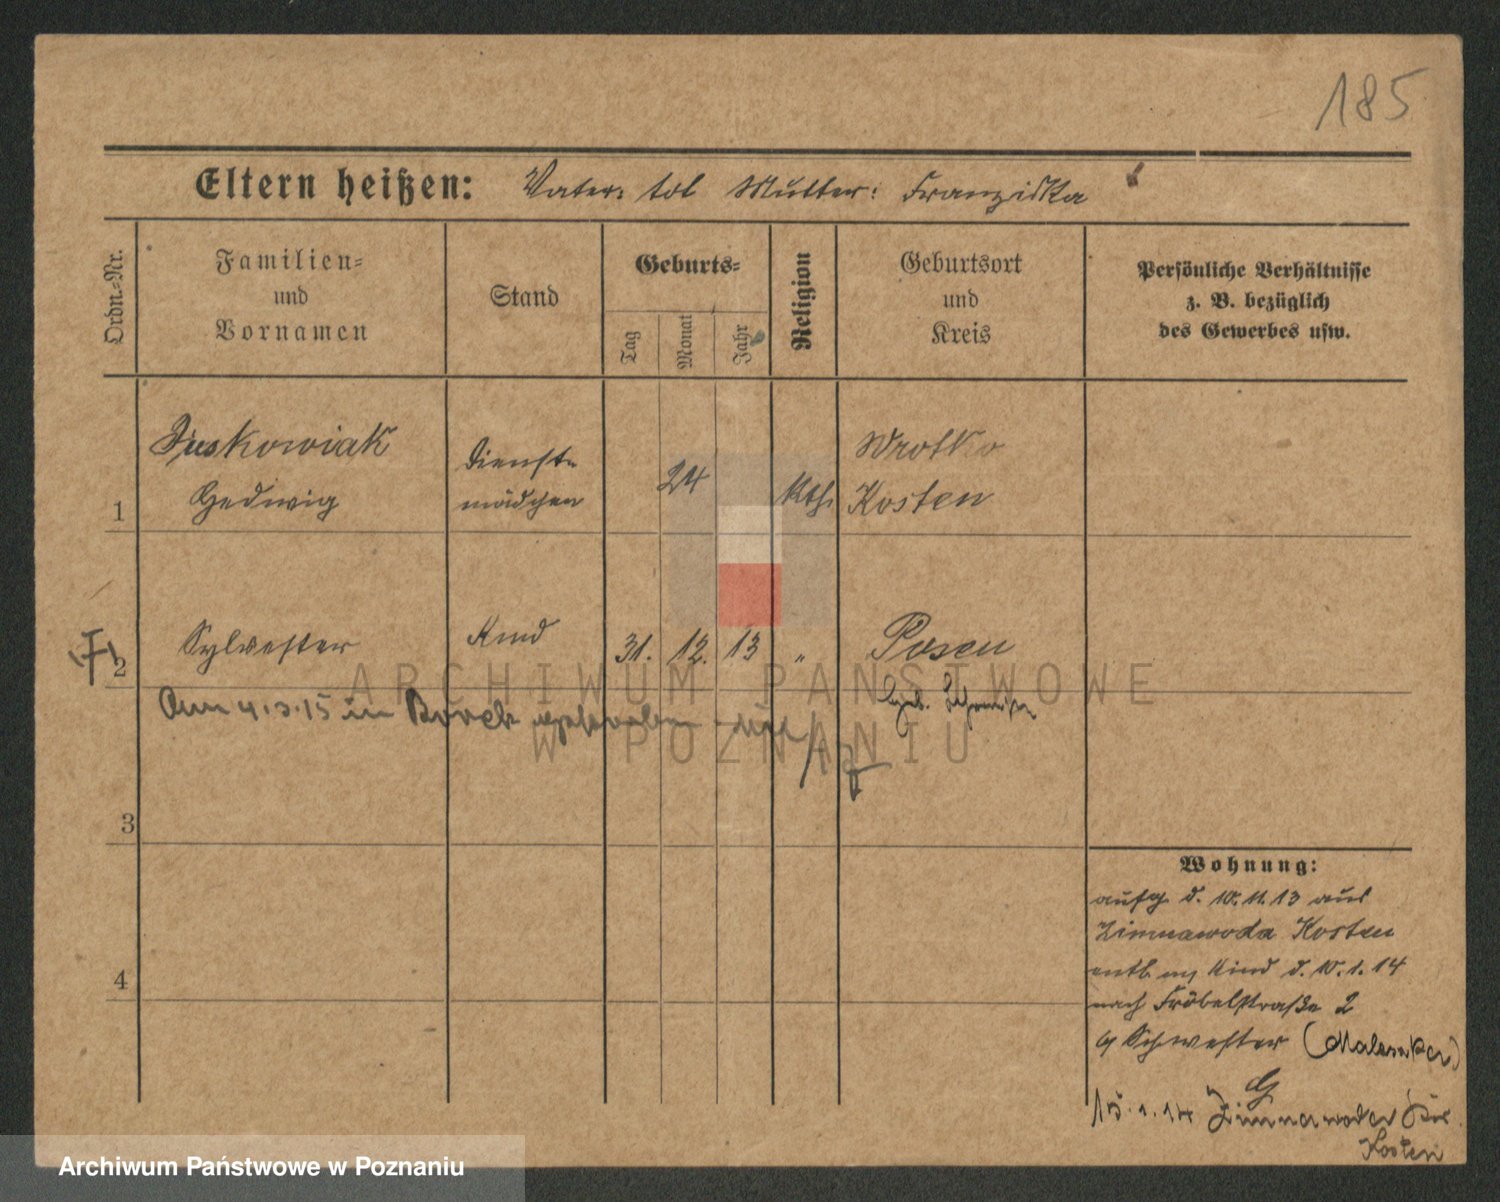 185
Eltern heißen: Vater: tot Mutter: Franziska
Ordn.-Nr.
Familien-
und
Vornamen
Stand
Geburts-
Tag
Monat
Jahr
Religion
Geburtsort
und
Kreis
Persönliche Verhältnisse
z. B. bezüglich
des Gewerbes usw.
Juskowiak
Hedwig
Dienst-
mädchen
24
kth.
Wrotko
Kosten
1
Sylvester
Kind
31. 12. 13
"
Posen
2
Am 4.3.15 in Borek gestorben
ARCHIWUM PAŃSTWOWE
W POZNANIU
3
4
Wohnung:
aufg. d. 10.11.13 aus
Zimnawoda Kosten
entl. m. Kind d. 10.1.14
nach Fröbelstraße 2
Schwester
15.1.14 Zimnawoda
Kosten
Archiwum Państwowe w Poznaniu